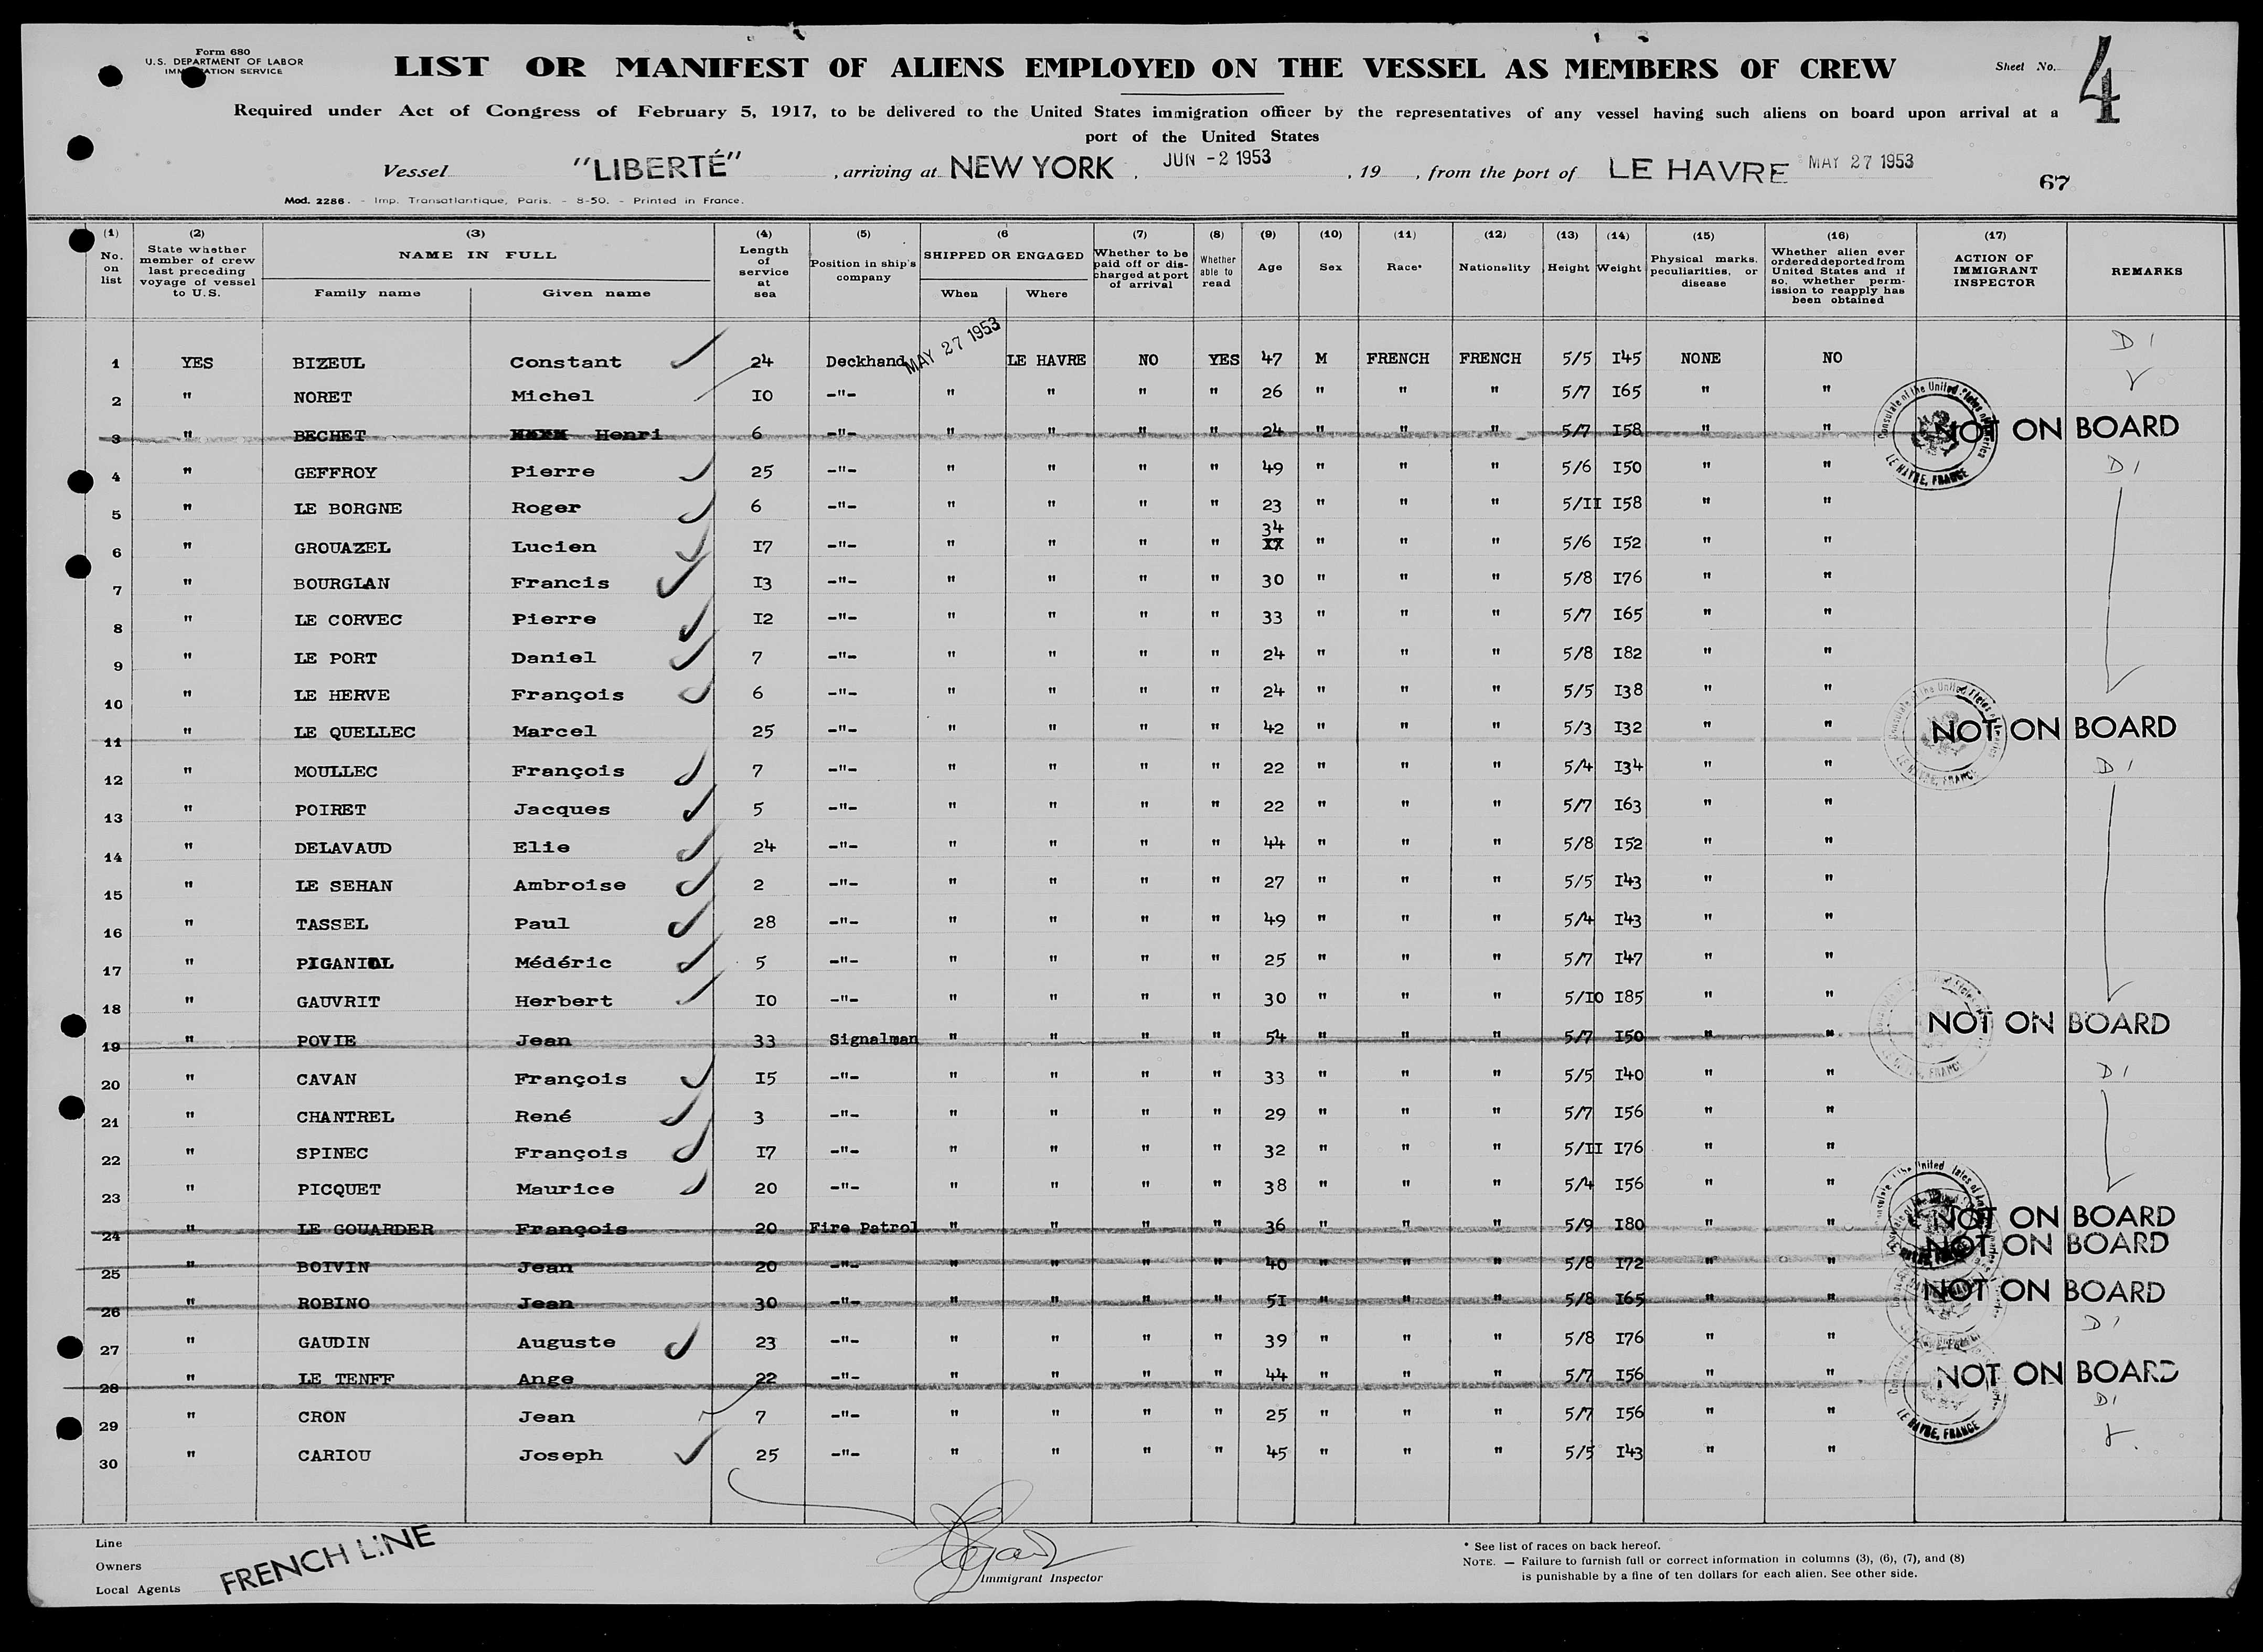 Form 680
U.S. DEPARTMENT OF LABOR
IMMIGRATION SERVICE
LIST OR MANIFEST OF ALIENS EMPLOYED ON THE VESSEL AS MEMBERS OF CREW
Sheet No. 4
Required under Act of Congress of February 5, 1917, to be delivered to the United States immigration officer by the representatives of any vessel having such aliens on board upon arrival at a
port of the United States
Vessel "LIBERTÉ", arriving at NEW YORK, JUN -2 1953, 19 , from the port of LE HAVRE MAY 27 1953
67
Mod. 2286. - Imp. Transatlantique, Paris. - 8-50. - Printed in France.
(1) No. on list (2) State whether member of crew last preceding voyage of vessel to U.S. (3) NAME IN FULL Family name Given name (4) Length of service at sea (5) Position in ship's company (6 SHIPPED OR ENGAGED When Where (7) Whether to be paid off or discharged at port of arrival (8) Whether able to read (9) Age (10) Sex (11) Race* (12) Nationality (13) Height (14) Weight (15) Physical marks, peculiarities, or disease (16) Whether alien ever ordered deported from United States and if so, whether permission to reapply has been obtained (17) ACTION OF IMMIGRANT INSPECTOR REMARKS
1 YES BIZEUL Constant 24 Deckhand MAY 27 1953 LE HAVRE NO YES 47 M FRENCH FRENCH 5/5 I45 NONE NO D1
2 " NORET Michel IO -"- " " " " 26 " " " 5/7 I65 " "
3 " BECHET Henri 6 -"- " " " " 24 " " " 5/7 I58 " " NOT ON BOARD
4 " GEFFROY Pierre 25 -"- " " " " 49 " " " 5/6 I50 " " D1
5 " LE BORGNE Roger 6 -"- " " " " 23 " " " 5/II I58 " "
6 " GROUAZEL Lucien I7 -"- " " " " 34 " " " 5/6 I52 " "
7 " BOURGLAN Francis I3 -"- " " " " 30 " " " 5/8 I76 " "
8 " LE CORVEC Pierre I2 -"- " " " " 33 " " " 5/7 I65 " "
9 " LE PORT Daniel 7 -"- " " " " 24 " " " 5/8 I82 " "
10 " LE HERVE François 6 -"- " " " " 24 " " " 5/5 I38 " "
11 " LE QUELLEC Marcel 25 -"- " " " " 42 " " " 5/3 I32 " " NOT ON BOARD
12 " MOULLEC François 7 -"- " " " " 22 " " " 5/4 I34 " " D1
13 " POIRET Jacques 5 -"- " " " " 22 " " " 5/7 I63 " "
14 " DELAVAUD Elie 24 -"- " " " " 44 " " " 5/8 I52 " "
15 " LE SEHAN Ambroise 2 -"- " " " " 27 " " " 5/5 I43 " "
16 " TASSEL Paul 28 -"- " " " " 49 " " " 5/4 I43 " "
17 " PIGANIOL Médéric 5 -"- " " " " 25 " " " 5/7 I47 " "
18 " GAUVRIT Herbert IO -"- " " " " 30 " " " 5/IO I85 " "
19 " POVIE Jean 33 Signalman " " " " 54 " " " 5/7 I50 " " NOT ON BOARD
20 " CAVAN François I5 -"- " " " " 33 " " " 5/5 I40 " " D1
21 " CHANTREL René 3 -"- " " " " 29 " " " 5/7 I56 " "
22 " SPINEC François I7 -"- " " " " 32 " " " 5/II I76 " "
23 " PICQUET Maurice 20 -"- " " " " 38 " " " 5/4 I56 " "
24 " LE GOUARDER François 20 Fire Patrol " " " " 36 " " " 5/9 I80 " " NOT ON BOARD
25 " BOIVIN Jean 20 -"- " " " " 40 " " " 5/8 I72 " " NOT ON BOARD
26 " ROBINO Jean 30 -"- " " " " 5I " " " 5/8 I65 " " NOT ON BOARD
27 " GAUDIN Auguste 23 -"- " " " " 39 " " " 5/8 I76 " " D1
28 " LE TENFF Ange 22 -"- " " " " 44 " " " 5/7 I56 " " NOT ON BOARD
29 " CRON Jean 7 -"- " " " " 25 " " " 5/7 I56 " " D1
30 " CARIOU Joseph 25 -"- " " " " 45 " " " 5/5 I43 " "
Consulate of the United States of America LE HAVRE, FRANCE
Line
Owners
Local Agents
FRENCH LINE
Immigrant Inspector
* See list of races on back hereof.
NOTE. — Failure to furnish full or correct information in columns (3), (6), (7), and (8)
is punishable by a fine of ten dollars for each alien. See other side.